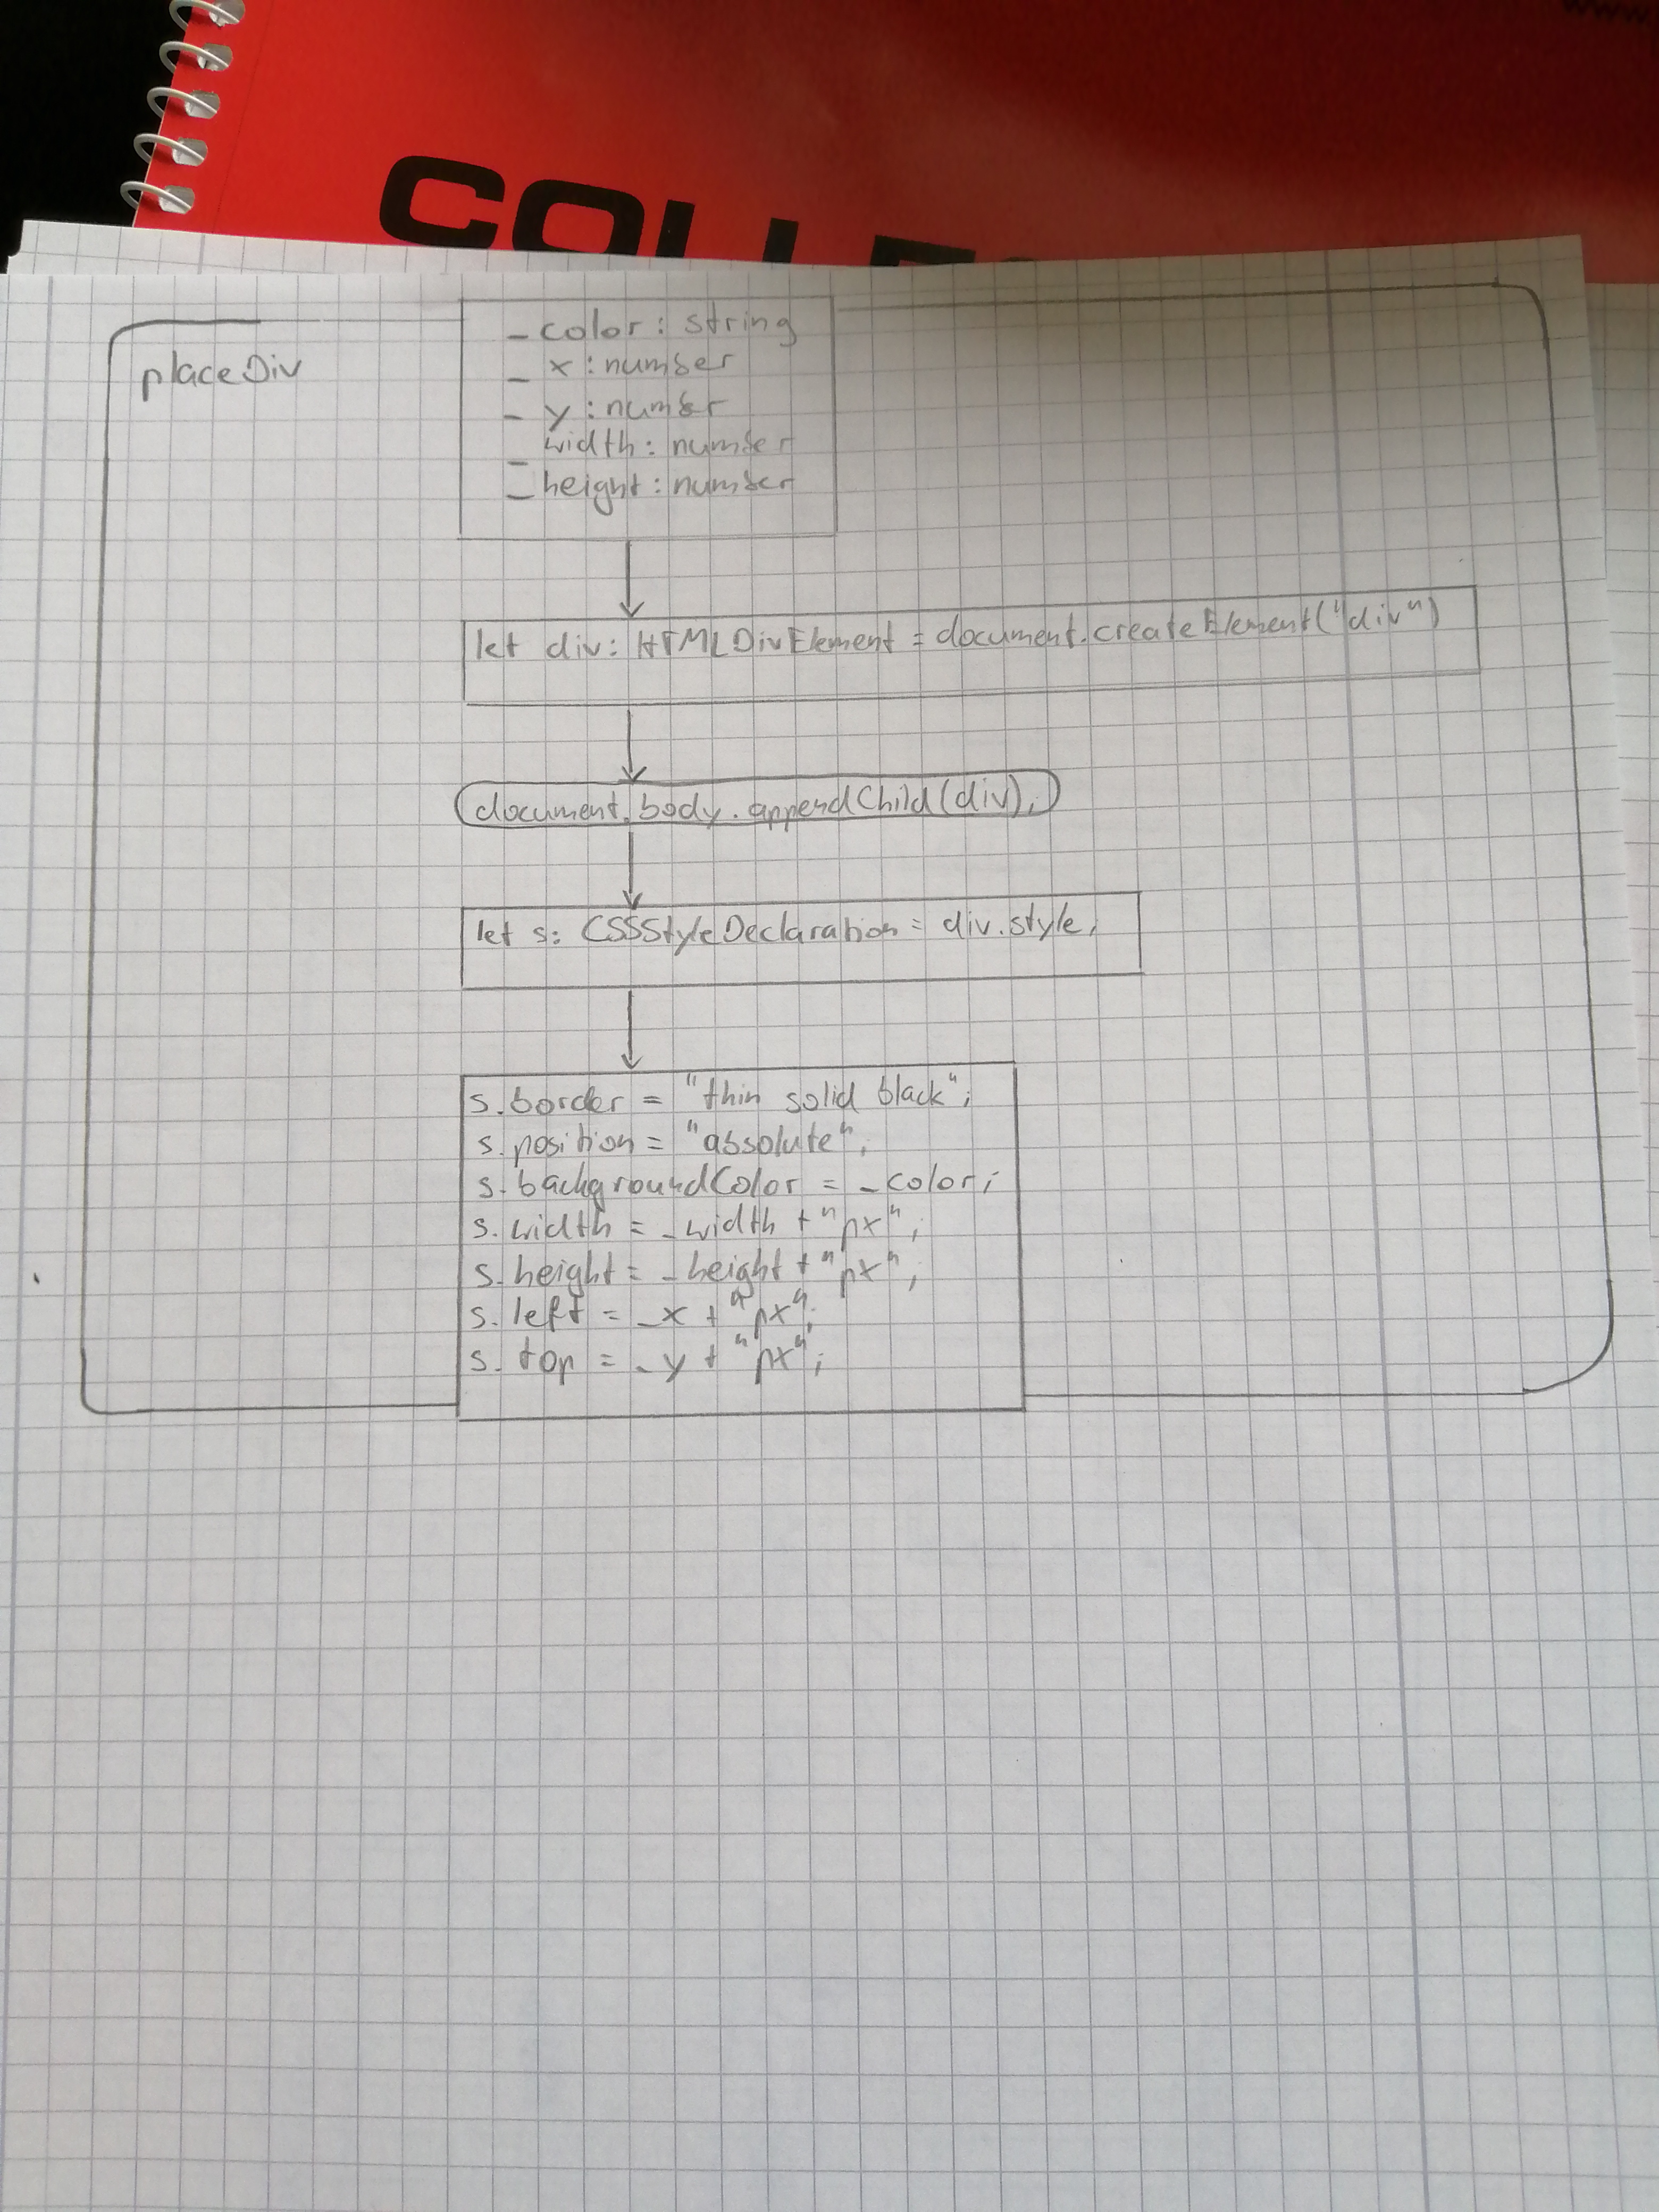 COLLE
placeDiv
_color: string
_x: number
_y: number
_width: number
_height: number
let div: HTMLDivElement = document.createElement("div")
document.body.appendChild(div);
let s: CSSStyleDeclaration = div.style;
s.border = "thin solid black";
s.position = "absolute";
s.backgroundColor = _color;
s.width = _width + "px";
s.height = _height + "px";
s.left = _x + "px";
s.top = _y + "px";